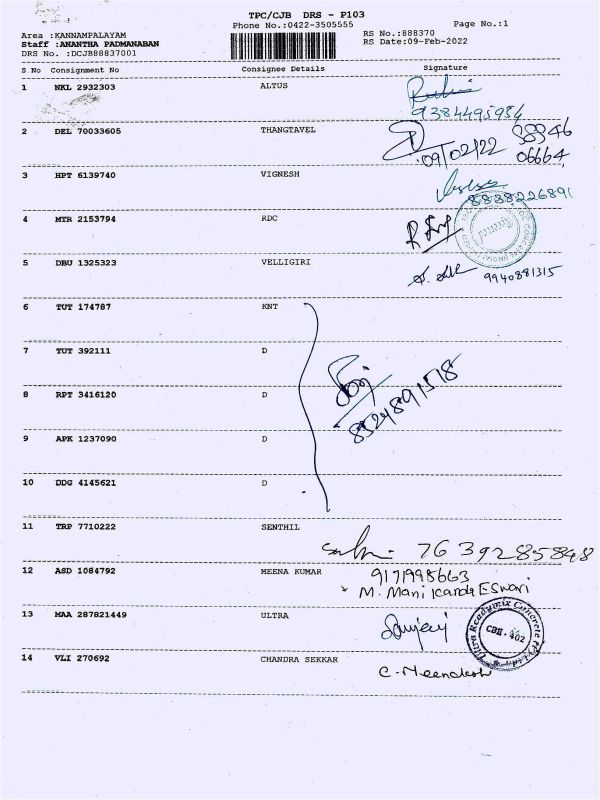 TPC/CJB DRS - P103
Phone No.:0422-3505555
Page No.:1
Area :KANNAMPALAYAM
Staff :ANANTHA PADMANABAN
DRS No. :DCJB88837001
RS No.:888370
RS Date:09-Feb-2022
S No Consignment No Consignee Details Signature
1 NKL 2932303 ALTUS
9384495954
2 DEL 70033605 THANGTAVEL
09/02/22 88846
06664
3 HPT 6139740 VIGNESH
8838226891
4 MTR 2153794 RDC
5 DBU 1325323 VELLIGIRI
9940881315
6 TUT 174787 KNT
7 TUT 392111 D
8 RPT 3416120 D
8524891518
9 APK 1237090 D
10 DDG 4145621 D
11 TRP 7710222 SENTHIL
7639285848
12 ASD 1084792 MEENA KUMAR 9171998663
M. Manikanda Eswari
13 MAA 287821449 ULTRA Sanjay
Ultra Readymix Concrete
CBE-402
14 VLI 270692 CHANDRA SEKKAR
C. Meenakshi